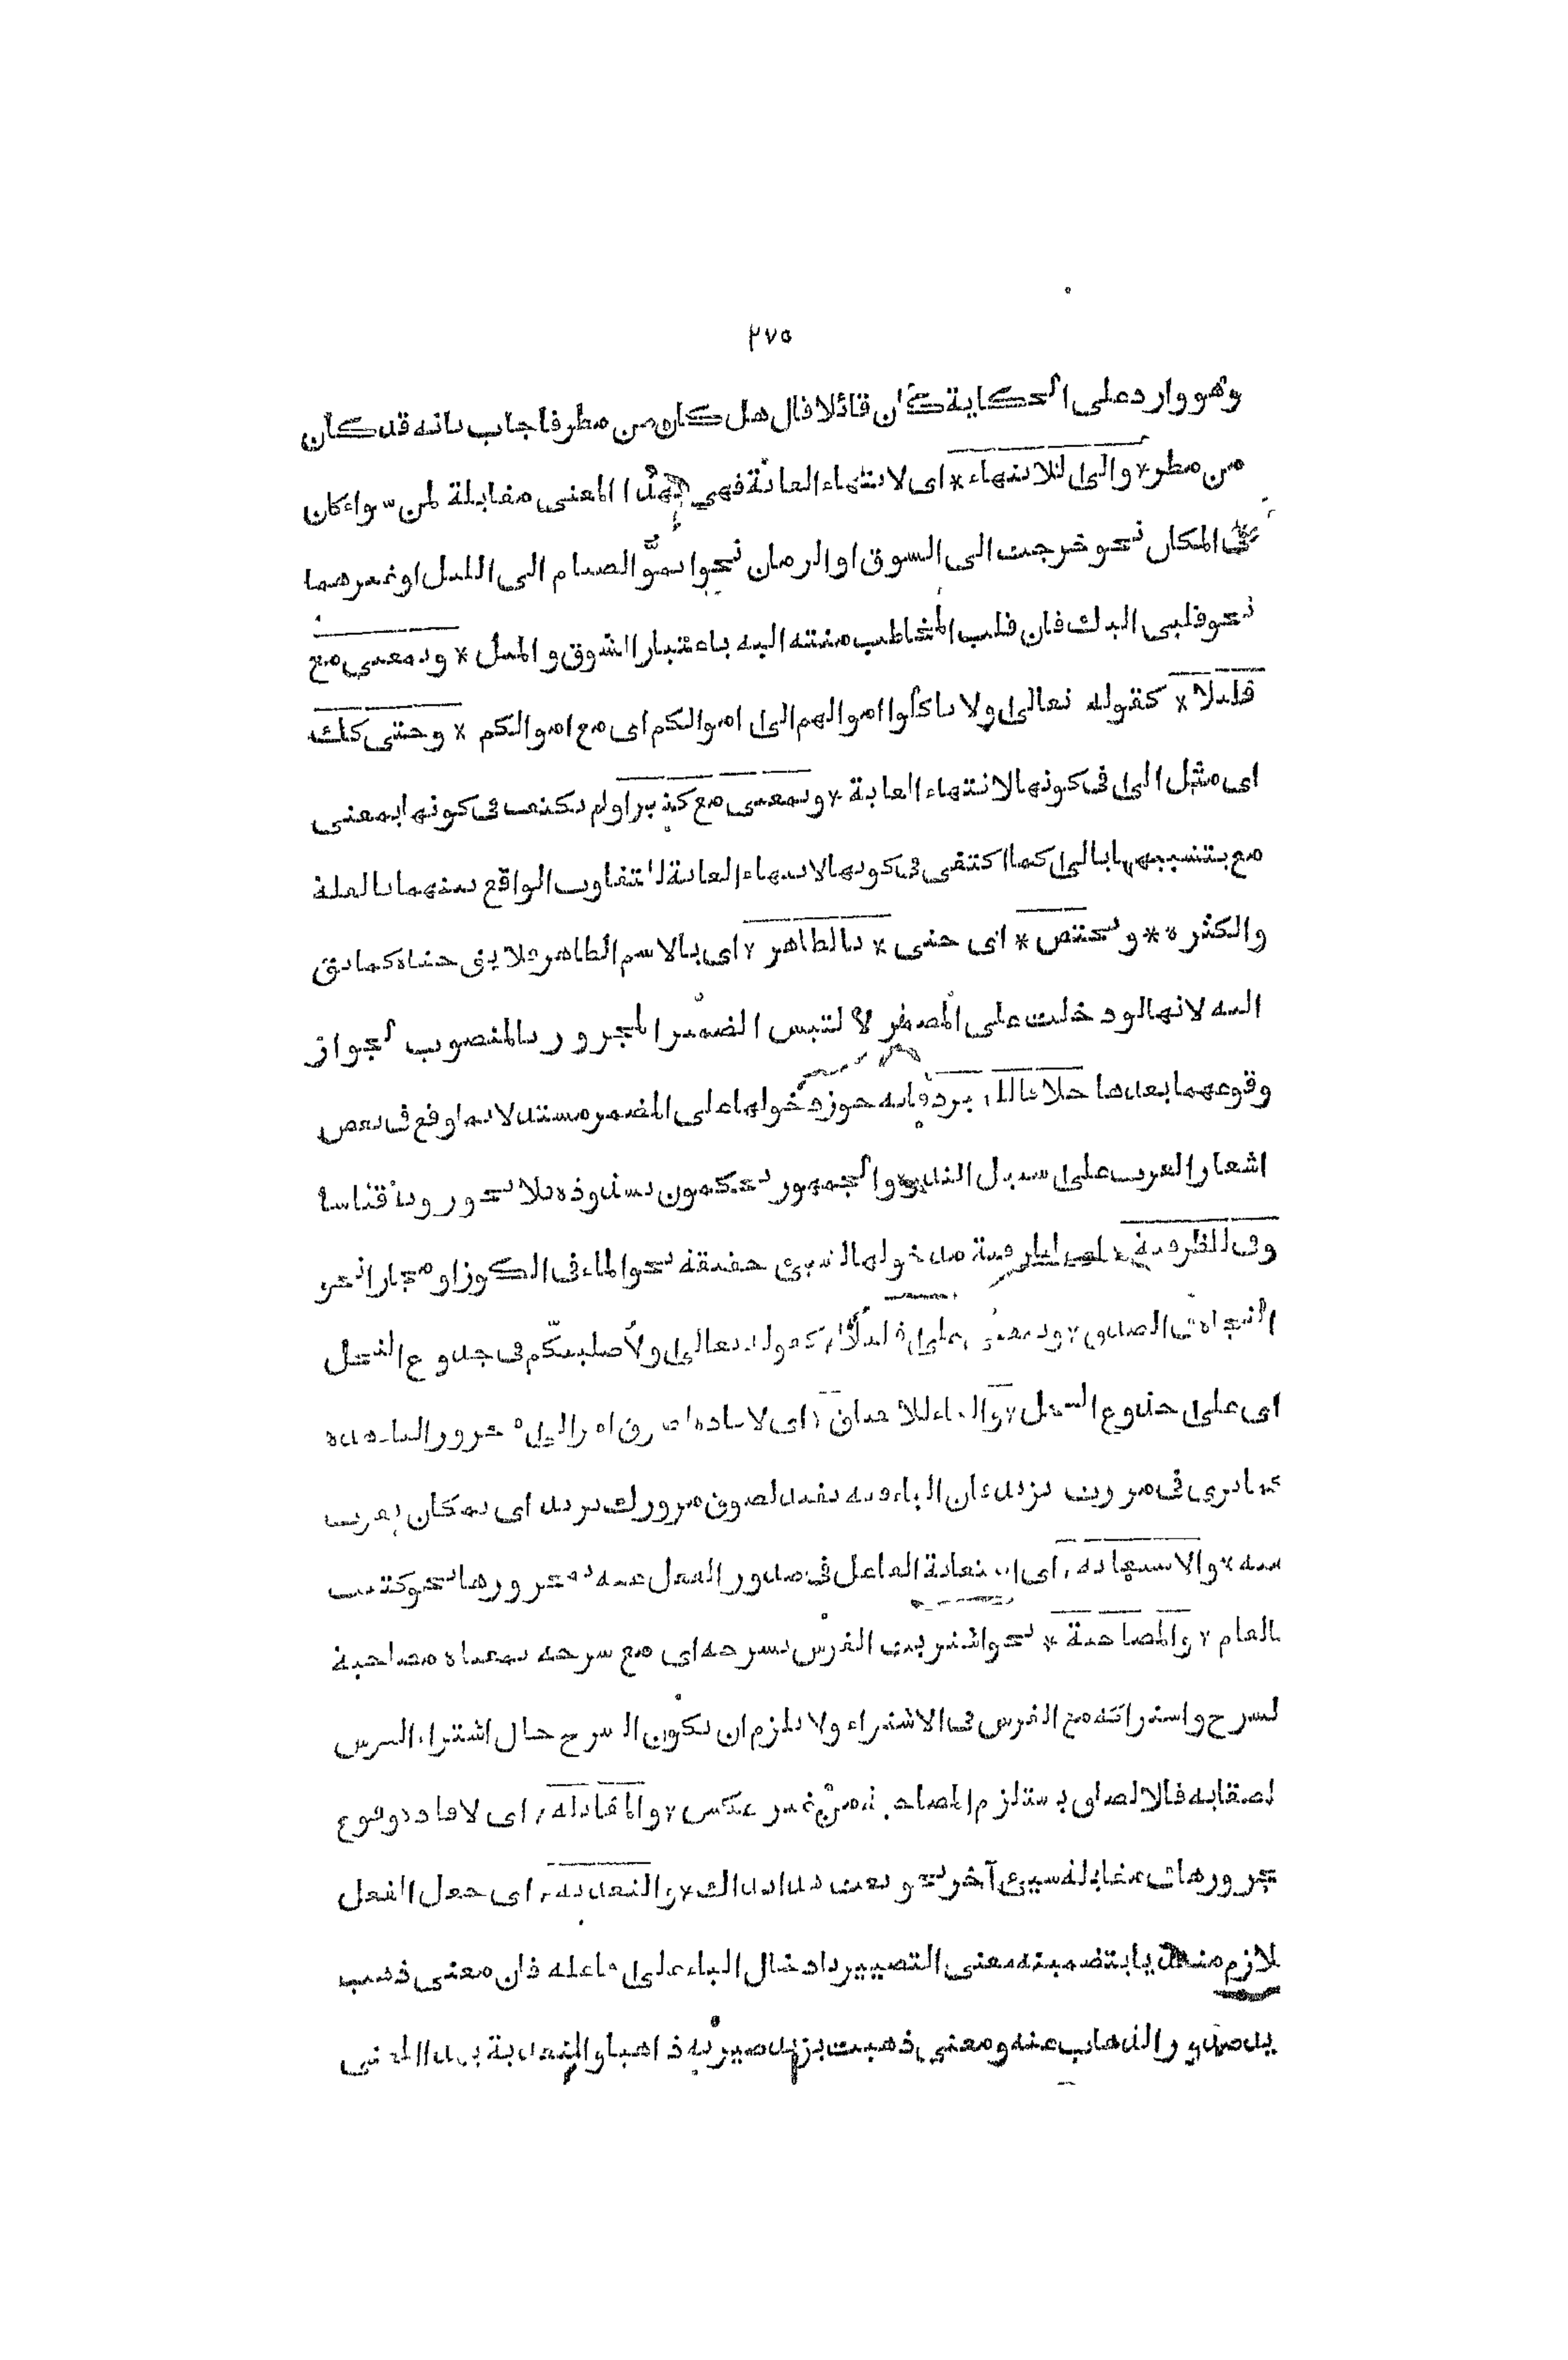 ٢٧٥
وهو وارد على الحكاية كأن قائلا قال هل كان من مطر فاجاب بانه قد كان
من مطر * والى للانتهاء * اى لانتهاء الغاية فهى بهذا المعنى مقابلة لمن سواء كان
فى المكان نحو خرجت الى السوق او الزمان نحو اتموا الصيام الى الليل او غيرهما
نحو قلبى اليك فان قلب المخاطب منته اليه باعتبار الشوق والميل * وبمعنى مع
قليلا * كقوله تعالى ولا تاكلوا اموالهم الى اموالكم اى مع اموالكم * وحتى كذلك
اى مثل الى فى كونها لانتهاء الغاية * وبمعنى مع كثيرا ولم يكتف فى كونها بمعنى
مع بتشبيهها بالى كما اكتفى فى كونها لانتهاء الغاية للتفاوت الواقع بينهما بالقلة
والكثرة * * ويختص * اى حتى * بالظاهر * اى بالاسم الظاهر فلا يق حتاه كما يق
اليه لانها لو دخلت على المضمر لالتبس الضمير المجرور بالمنصوب لجواز
وقوعهما بعدها خلافا للمبرد فانه جوز دخولها على المضمر مستدلا بما وقع فى بعض
اشعار العرب على سبيل الندرة والجمهور يحكمون بشذوذه فلا يجوزونه قياسا
وفى للظرفية * اى لظرفية مدخولها لشىء حقيقة نحو الماء فى الكوز او مجازا نحو
النجاة فى الصدق * وبمعنى على قليلا * كقوله تعالى ولأصلبنكم فى جذوع النخل
اى على جذوع النخل * والباء للالصاق * اى لافادة لصوق امر الى مجرور الباء هذه
كما ترى فى مررت بزيد فان الباء فيه تفيد لصوق مرورك بزيد اى بمكان يقرب
منه * والاستعانة * اى استعانة الفاعل فى صدور الفعل عنه بمجرورها نحو كتبت
بالقلم * والمصاحبة * نحو اشتريت الفرس بسرجه اى مع سرجه فمعناه مصاحبة
السرج واشتراكه مع الفرس فى الاشتراء ولا يلزم ان يكون السرج حال اشتراء الفرس
لصقا به فالالصاق يستلزم المصاحبة من غير عكس * والمقابلة * اى لافادة وقوع
مجرورها فى مقابلة شىء آخر نحو بعت هذا بذاك * والتعدية * اى جعل الفعل
لازم متعديا بتضمينه معنى التصيير بادخال الباء على فاعله فان معنى ذهب
زيد صدور الذهاب عنه ومعنى ذهبت بزيد صيرته ذاهبا والتعدية بهذا المعنى